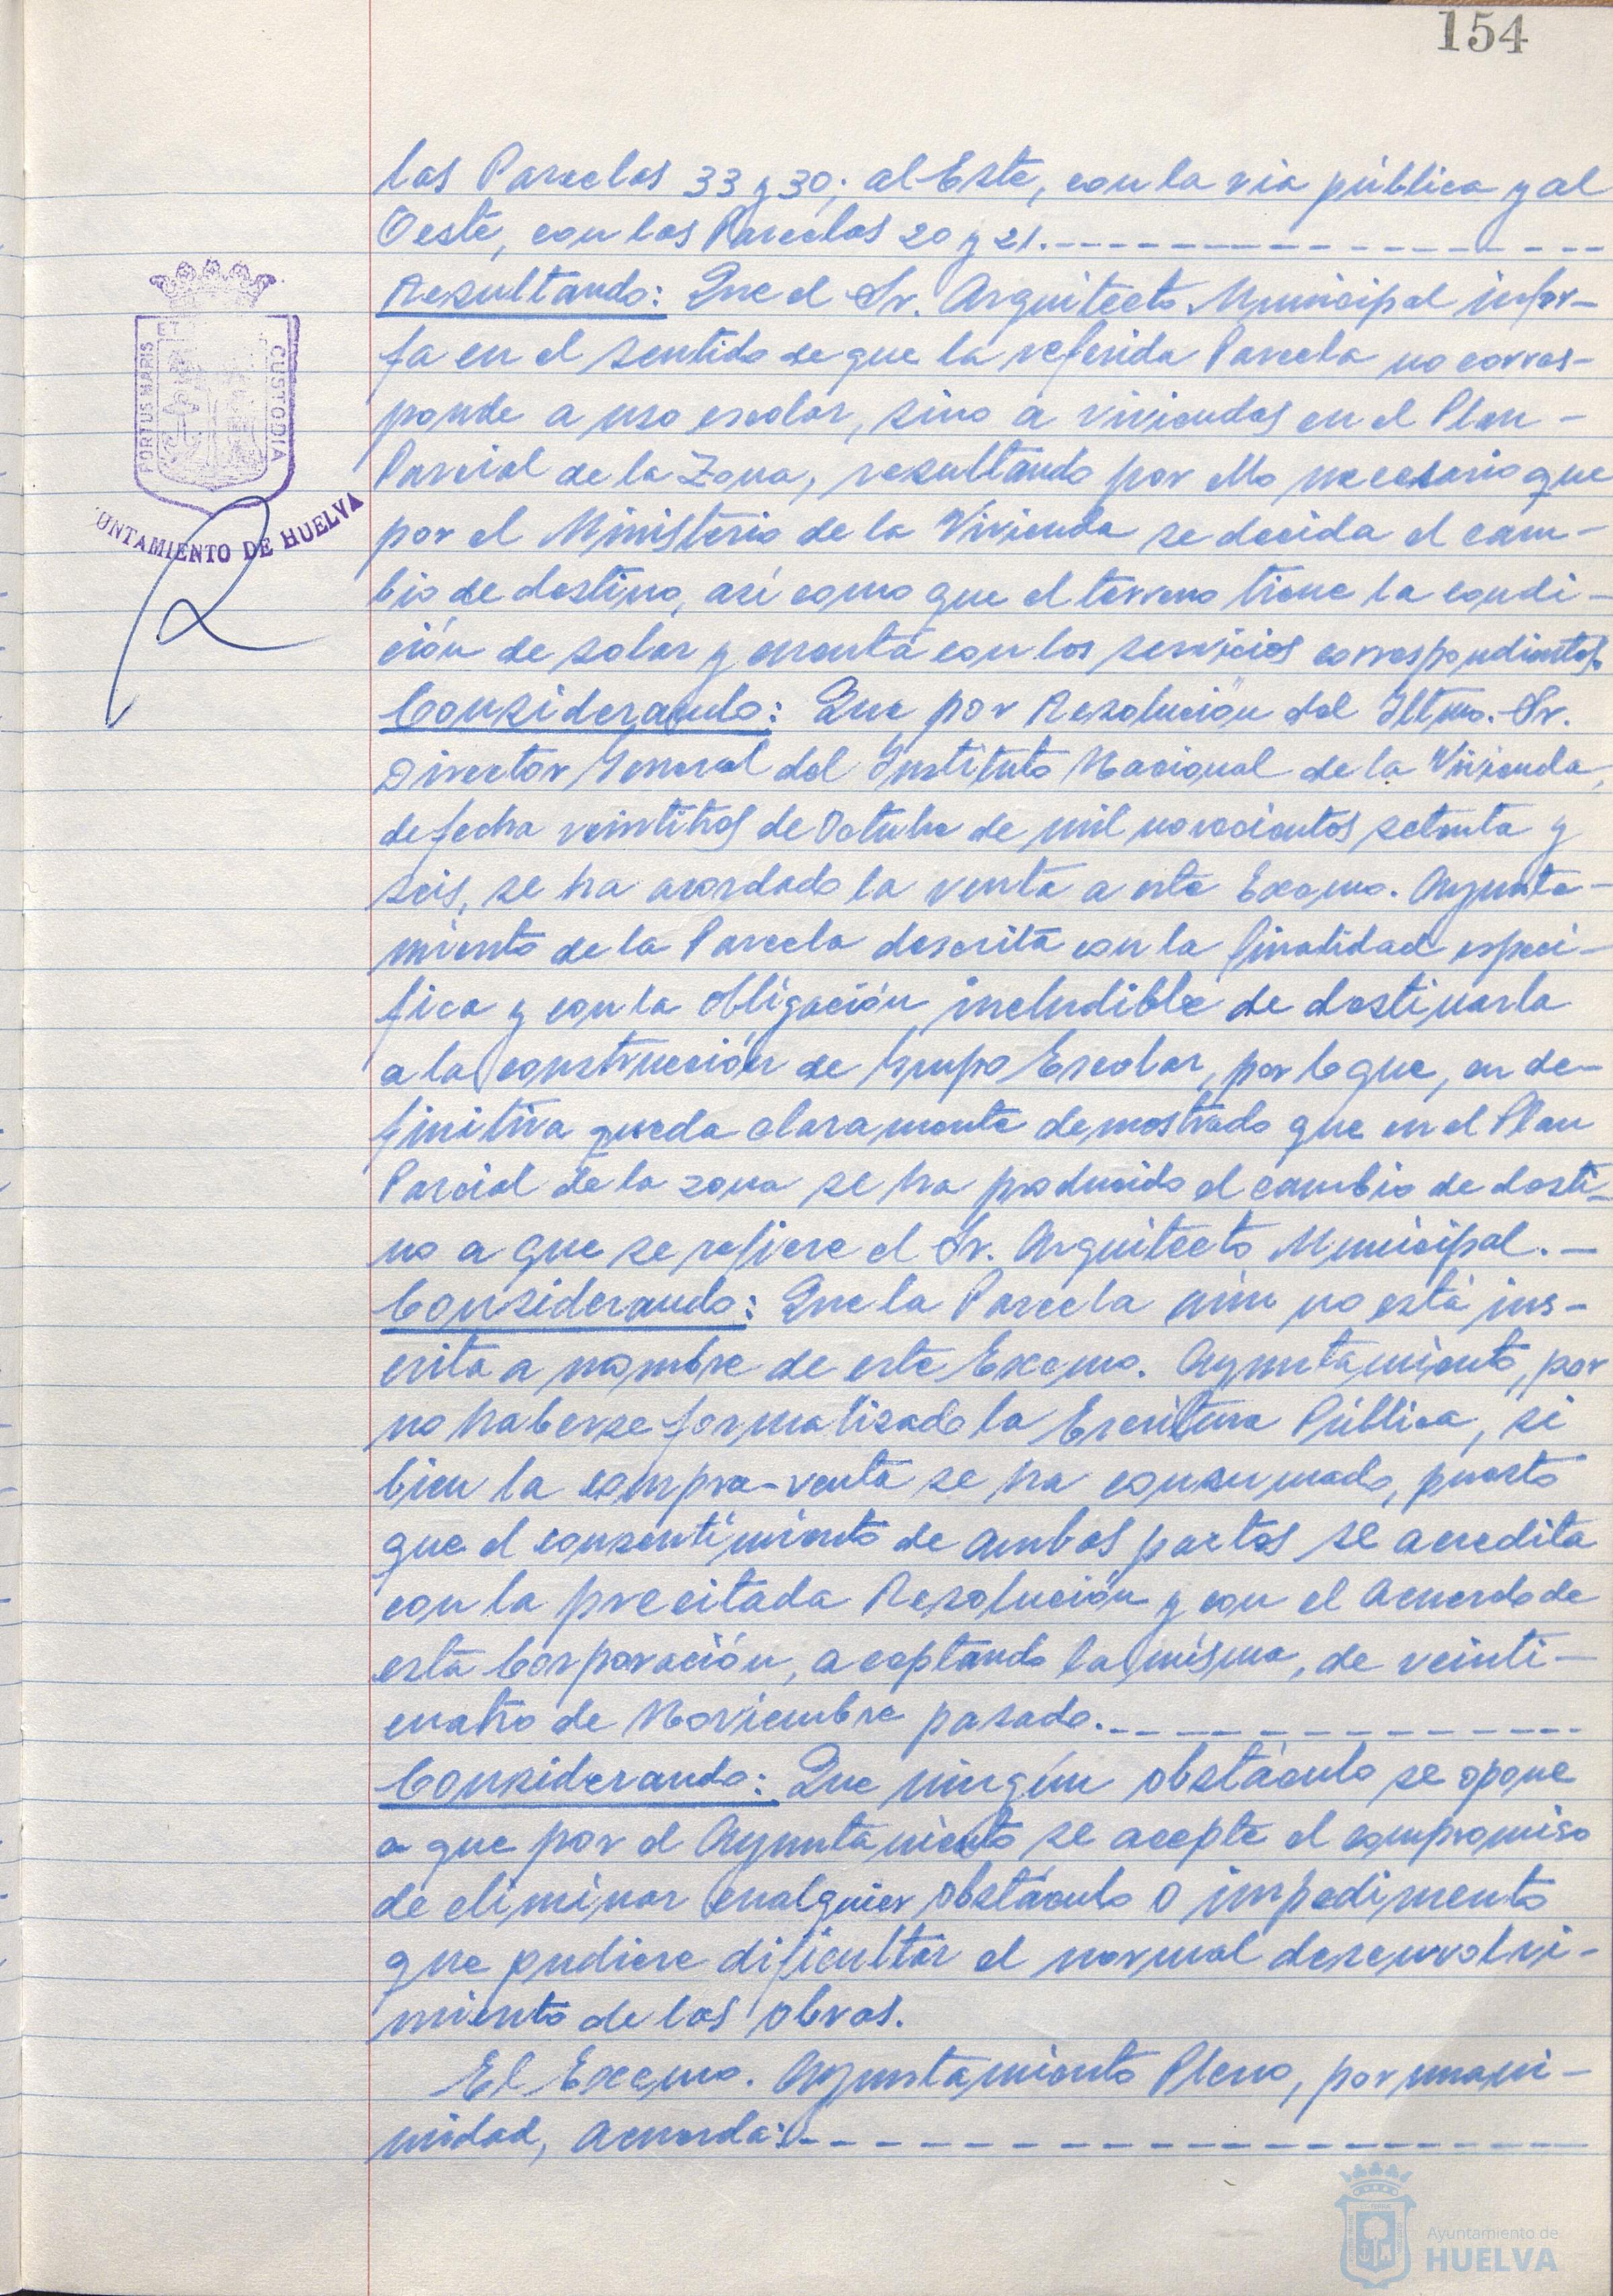 154
las Parcelas 33 y 30; al Este, con la via pública y al
Oeste, con las Parcelas 20 y 21.
Resultando: Que el Sr. Arquitecto Municipal infor-
fa en el sentido de que la referida Parcela no corres-
ponde a uso escolar, sino a viviendas en el Plan -
Parcial de la Zona, resultando por ello necesario que
por el Ministerio de la Vivienda se decida el cam-
bio de destino, así como que el terreno tiene la condi-
ción de solar y cuenta con los servicios correspondientes.
Considerando: Que por Resolución del Iltmo. Sr.
Director General del Instituto Nacional de la Vivienda,
de fecha veintitrés de Octubre de mil novecientos setenta y
seis, se ha acordado la venta a este Excmo. Ayunta-
miento de la Parcela descrita con la finalidad especí-
fica y con la obligación ineludible de destinarla
a la construcción de Grupo Escolar, por lo que, en de-
finitiva queda claramente demostrado que en el Plan
Parcial de la zona se ha producido el cambio de desti-
no a que se refiere el Sr. Arquitecto Municipal. -
Considerando: Que la Parcela aún no está ins-
crita a nombre de este Excmo. Ayuntamiento, por
no haberse formalizado la Escritura Pública, si
bien la compra-venta se ha consumado, puesto
que el consentimiento de ambas partes se acredita
con la precitada Resolución y con el Acuerdo de
esta Corporación, aceptando la misma, de veinti-
cuatro de Noviembre pasado.
Considerando: Que ningún obstáculo se opone
a que por el Ayuntamiento se acepte el compromiso
de eliminar cualquier obstáculo o impedimento
que pudiere dificultar el normal desenvolvi-
miento de las obras.
El Excmo. Ayuntamiento Pleno, por unani-
midad, acuerda:
PORTUS MARIS ET CUSTODIA
UNTAMIENTO DE HUELVA
Ayuntamiento de
HUELVA